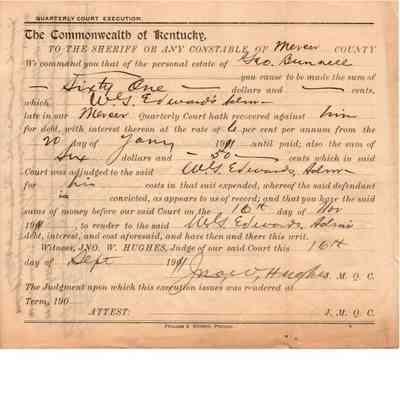 QUARTERLY COURT EXECUTION.
The Commonwealth of Kentucky,
TO THE SHERIFF OR ANY CONSTABLE OF Mercer COUNTY
We command you that of the personal estate of Geo. Bunnell
you cause to be made the sum of
— Sixty One — dollars and — cents,
which W.G. Edwards Adm—
late in our Mercer Quarterly Court hath recovered against him
for debt, with interest thereon at the rate of 6 per cent per annum from the
20 day of Jany 1911 until paid; also the sum of
Six dollars and — 50 — cents which in said
Court was adjudged to the said W.G. Edwards, Adm—
for his costs in that suit expended, whereof the said defendant
is convicted, as appears to us of record; and that you have the said
sums of money before our said Court on the 16th day of Nov
1911, to render to the said W.G. Edwards, Adm
debt, interest, and cost aforesaid, and have then and there this writ.
Witness, JNO. W. HUGHES, Judge of our said Court this 16th
day of Sept 1911
Jno. W. Hughes J. M. Q. C.
The Judgment upon which this execution issues was rendered at
Term, 190
ATTEST: J. M. Q. C.